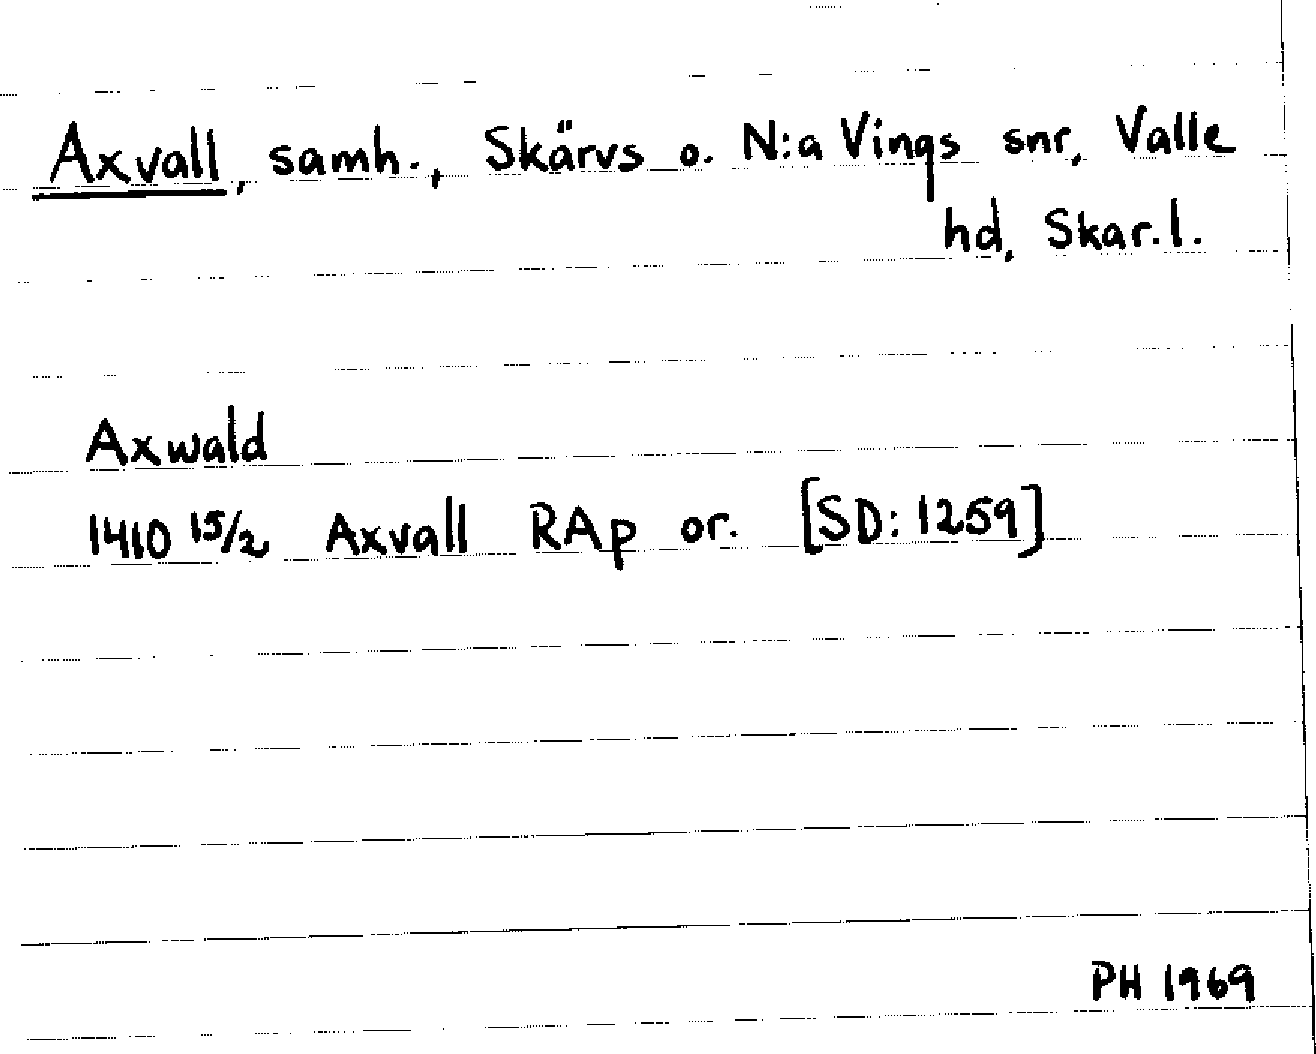 Axvall, samh., Skärvs o. N:a Vings snr, Valle
hd, Skar.l.
Axwald
1410 15/2 Axvall RAp or. [SD: 1259]
PH 1969